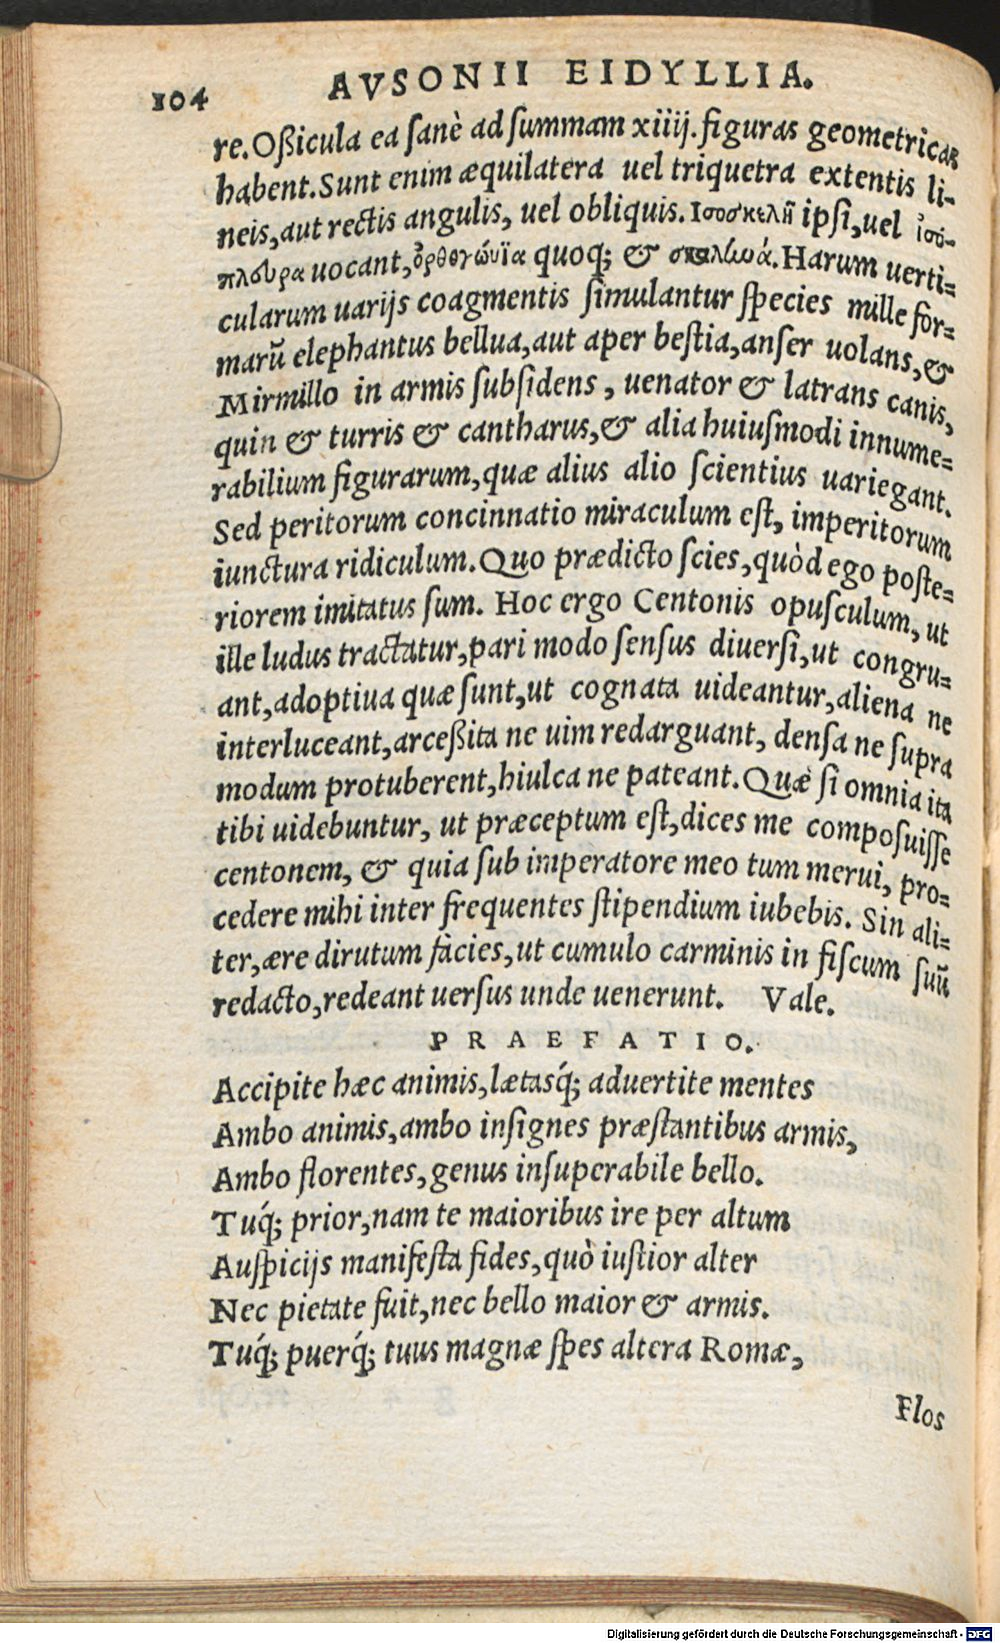 104 AVSONII EIDYLLIA.
re. Oßicula ea sanè ad summam xiiij. figuras geometricas
habent. Sunt enim æquilatera uel triquetra extentis li-
neis, aut rectis angulis, uel obliquis. Ισοσκελῆ ipsi, uel ἰσό-
πλουρα uocant, ὀρθογώνϊα quoq; & σκαλωά. Harum uerti-
cularum uarijs coagmentis simulantur species mille for-
marũ elephantus bellua, aut aper bestia, anser uolans, &
Mirmillo in armis subsidens, uenator & latrans canis,
quin & turris & cantharus, & alia huiusmodi innume-
rabilium figurarum, quæ alius alio scientius uariegant.
Sed peritorum concinnatio miraculum est, imperitorum
iunctura ridiculum. Quo prædicto scies, quòd ego poste-
riorem imitatus sum. Hoc ergo Centonis opusculum, ut
ille ludus tractatur, pari modo sensus diuersi, ut congru-
ant, adoptiua quæ sunt, ut cognata uideantur, aliena ne
interluceant, arceßita ne uim redarguant, densa ne supra
modum protuberent, hiulca ne pateant. Quæ si omnia ita
tibi uidebuntur, ut præceptum est, dices me composuisse
centonem, & quia sub imperatore meo tum merui, pro-
cedere mihi inter frequentes stipendium iubebis. Sin ali-
ter, ære dirutum facies, ut cumulo carminis in fiscum suũ
redacto, redeant uersus unde uenerunt. Vale.
PRAEFATIO.
Accipite hæc animis, lætasq́; aduertite mentes
Ambo animis, ambo insignes præstantibus armis,
Ambo florentes, genus insuperabile bello.
Tuq́; prior, nam te maioribus ire per altum
Auspicijs manifesta fides, quò iustior alter
Nec pietate fuit, nec bello maior & armis.
Tuq́; puerq́; tuus magnæ spes altera Romæ,
Flos
Digitalisierung gefördert durch die Deutsche Forschungsgemeinschaft - DFG